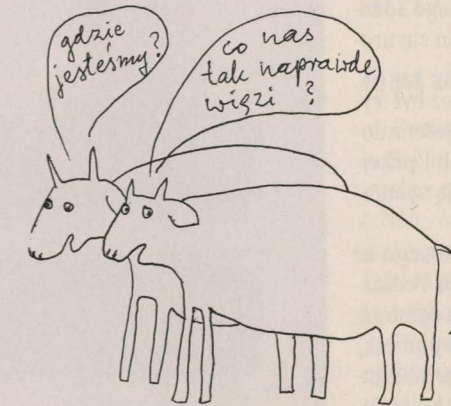 gdzie
jesteśmy?
co nas
tak naprawdę
więzi ?